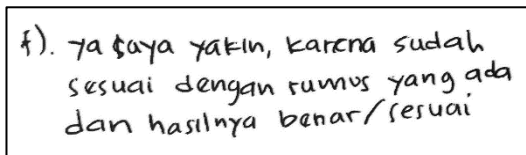 f). ya saya yakin, karena sudah
sesuai dengan rumus yang ada
dan hasilnya benar/sesuai